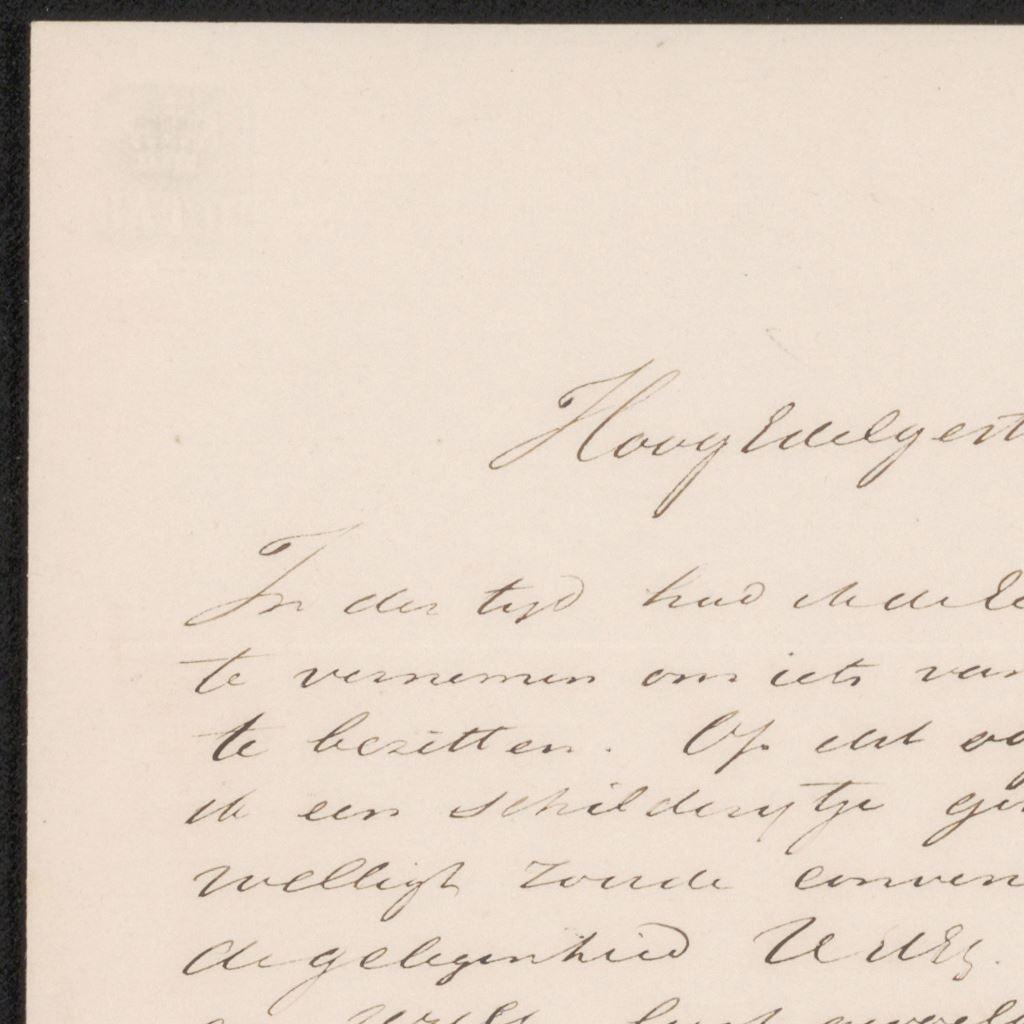 HoogEdelgest
In der tyd had ik de E
te vernemen om iets van
te bezitten. Op dit og
ik een schilderytje ge
welligt zoude conven
de gelegenheid UEdG.